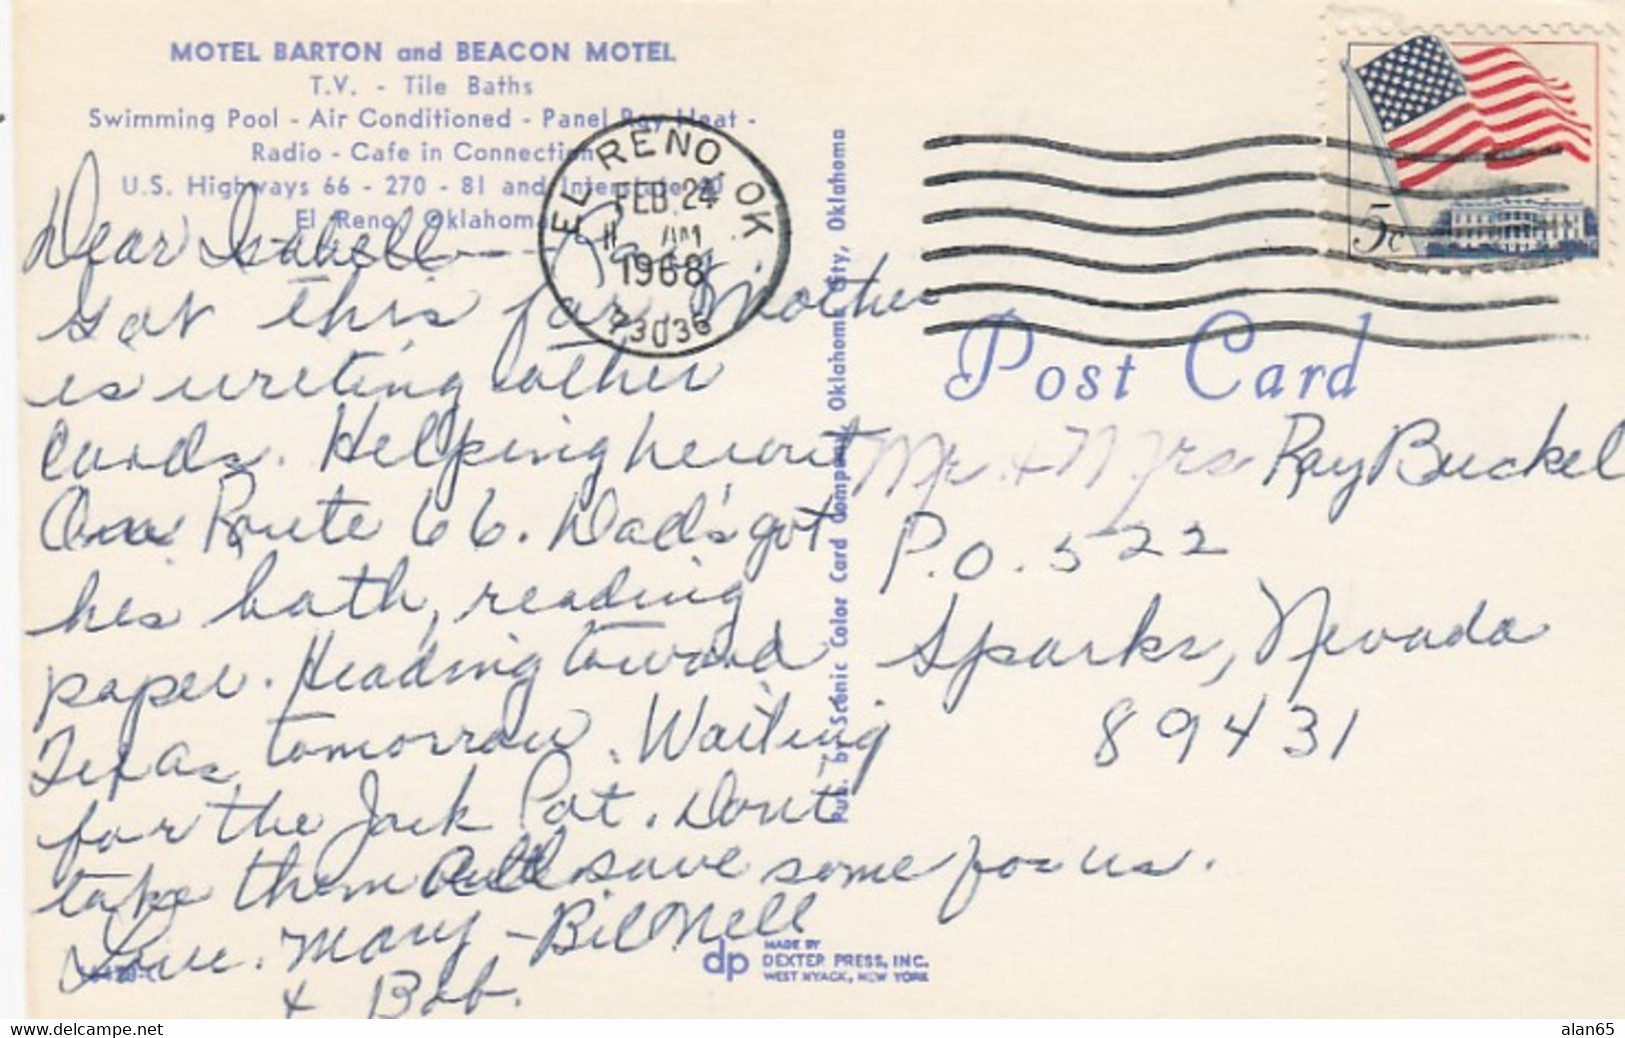 MOTEL BARTON and BEACON MOTEL
T.V. - Tile Baths
Swimming Pool - Air Conditioned - Panel Ray Heat -
Radio - Cafe in Connection
U.S. Highways 66 - 270 - 81 and Interstate 40
El Reno, Oklahoma
EL RENO, OK
FEB 24
11 AM
1968
73036
5c
Post Card
Dear Isabell - Ray
Got this far. Mother
is writing other
Cards. Helping her out
On Route 66. Dad's got
his bath, reading
paper. Heading toward
Texas tomorrow. Waiting
for the Jack Pot. Don't
take them all save some for us.
Love. Mary - Bil Nell
+ Bob.
Mr. + Mrs Ray Buckel
P.O. 522
Sparks, Nevada
89431
Pub. by Scenic Color Card Company, Oklahoma City, Oklahoma
dp
MADE BY
DEXTER PRESS, INC.
WEST NYACK, NEW YORK
www.delcampe.net
alan65